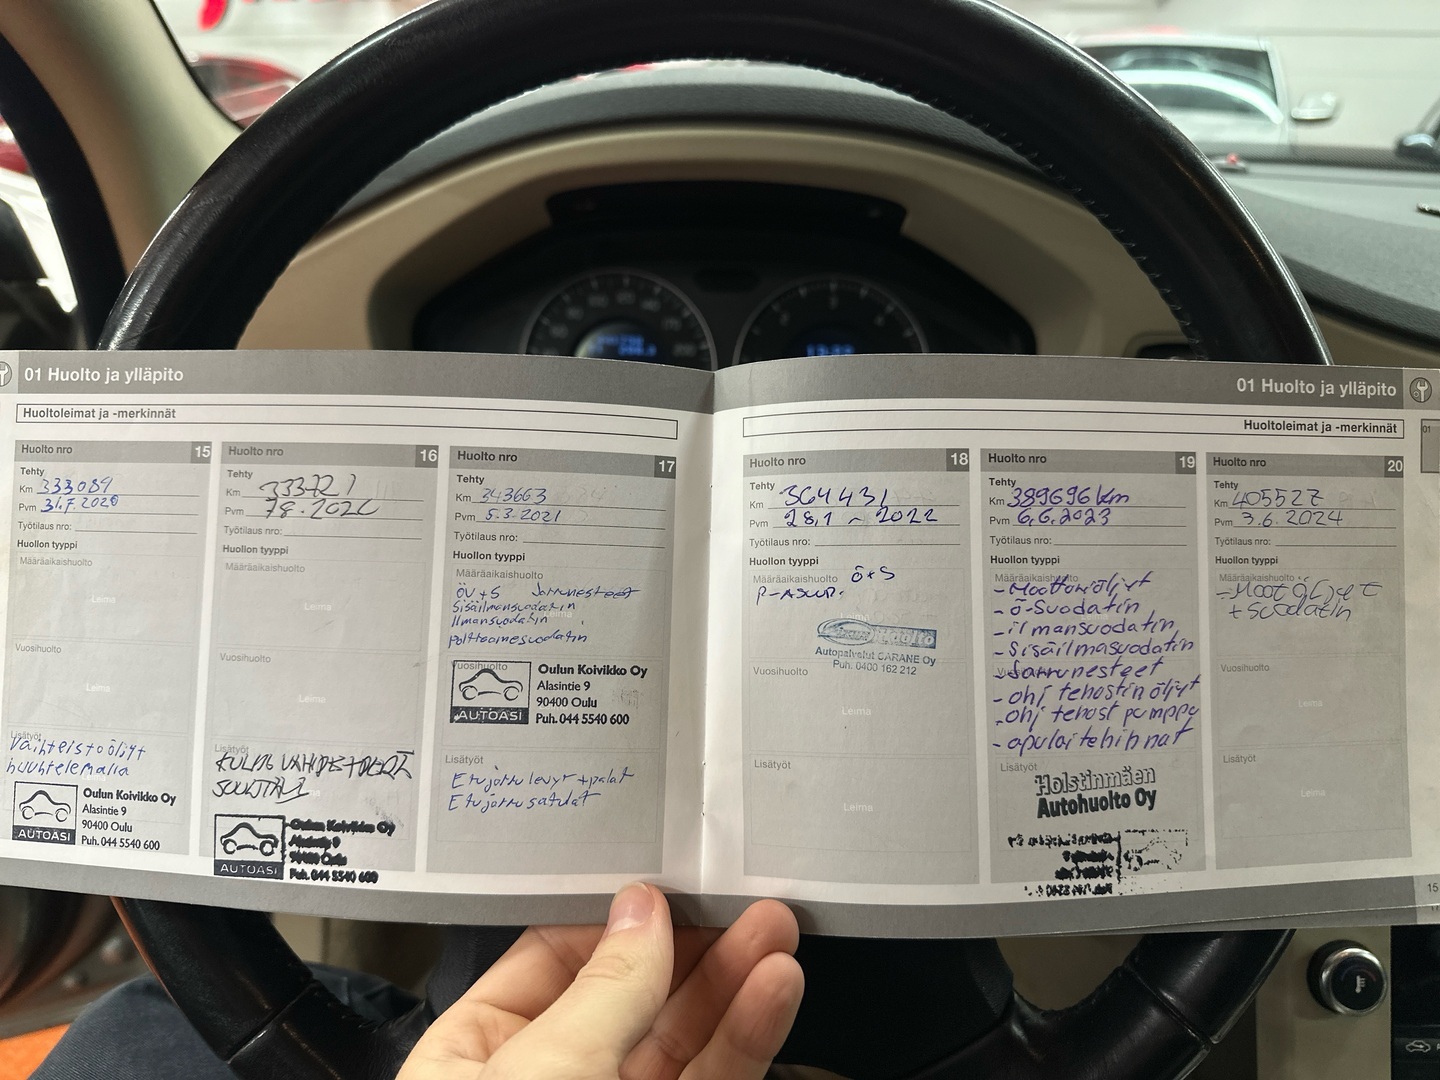 01 Huolto ja ylläpito
Huoltoleimat ja -merkinnät
Huolto nro 15
Tehty
Km 333089
Pvm 31.7.2020
Työtilaus nro:
Huollon tyyppi
Määräaikaishuolto
Leima
Vuosihuolto
Leima
Lisätyöt
Vaihteistoöljyt
huuhtelemalla
AUTOASI
Oulun Koivikko Oy
Alasintie 9
90400 Oulu
Puh. 044 5540 600
Huolto nro 16
Tehty
Km
Pvm
Työtilaus nro:
Huollon tyyppi
Määräaikaishuolto
Leima
Vuosihuolto
Leima
Lisätyöt
AUTOASI
Oulun Koivikko Oy
Alasintie 9
90400 Oulu
Puh. 044 5540 600
Huolto nro 17
Tehty
Km 343663
Pvm 5.3.2021
Työtilaus nro:
Huollon tyyppi
Määräaikaishuolto
ÖV+S Jarrunesteet
Sisäilmansuodatin
Ilmansuodatin
polttoainesuodatin
Vuosihuolto
AUTOASI
Oulun Koivikko Oy
Alasintie 9
90400 Oulu
Puh. 044 5540 600
Lisätyöt
Etujarru levyt + palat
Etujarru satulat
01 Huolto ja ylläpito
Huoltoleimat ja -merkinnät
01
Huolto nro 18
Tehty
Km 364431
Pvm 28,1 - 2022
Työtilaus nro:
Huollon tyyppi
Määräaikaishuolto Ö+S
huolto
Autopalvelut CARANE Oy
Puh. 0400 162 212
Vuosihuolto
Leima
Lisätyöt
Leima
Huolto nro 19
Tehty
Km 389696 km
Pvm 6.6.2023
Työtilaus nro:
Huollon tyyppi
Määräaikaishuolto
- Moottoriöljyt
- ö-Suodatin
- ilmansuodatin
- Sisäilmasuodatin
Vuosihuolto
- Jarrunesteet
- ohj tehostin öljyt
- ohj tehost pumppu
- apulaitehihnat
Lisätyöt
Holstinmäen
Autohuolto Oy
Huolto nro 20
Tehty
Km 405527
Pvm 3.6.2024
Työtilaus nro:
Huollon tyyppi
Määräaikaishuolto
- Moot öljyt
+ Suodatin
Vuosihuolto
Leima
Lisätyöt
Leima
15